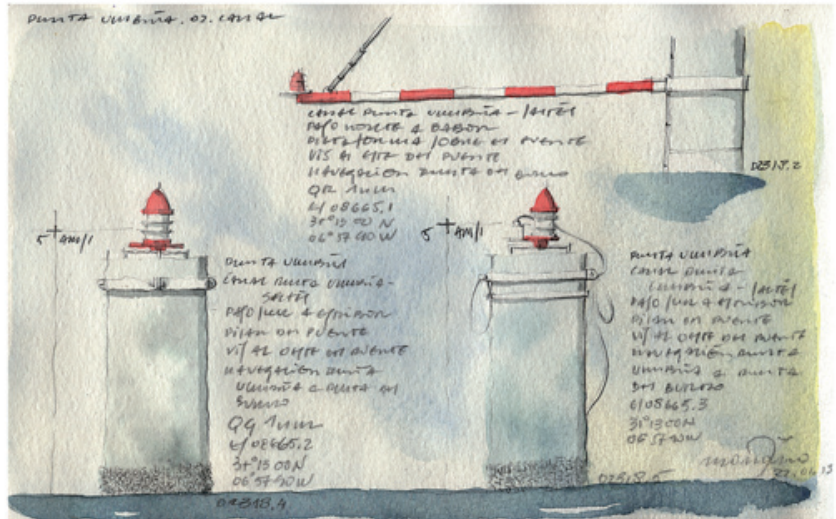 PUNTA UMBRÍA. 02. CANAL
CANAL PUNTA UMBRÍA - SALTÉS
PASO NORTE A BABOR
PLATAFORMA SOBRE EL PUENTE
VIS AL ESTE DEL PUENTE
NAVEGACIÓN PUNTA DEL BURRO
QR 1mm
E/ 08665.1
06°57'40 W
02318.2
5 AM/I
5 AM/I
PUNTA UMBRÍA
CANAL PUNTA UMBRÍA -
SALTÉS
PASO SUR A ESTRIBOR
PILAR DEL PUENTE
VIS AL OESTE DEL PUENTE
NAVEGACIÓN PUNTA
UMBRÍA A PUNTA DEL
BURRO
QG 1mm
E/ 08665.2
02318.4
PUNTA UMBRÍA
CANAL PUNTA
UMBRÍA - SALTÉS
PASO SUR A ESTRIBOR
PILAR DEL PUENTE
VIS AL OESTE DEL PUENTE
NAVEGACIÓN PUNTA
UMBRÍA A PUNTA
DEL BURRO
E/ 08665.3
02318.5